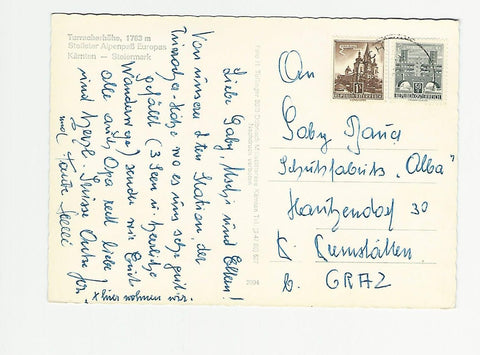 Turracherhöhe, 1763 m
Steilster Alpenpaß Europas
Kärnten — Steiermark
Liebe Gaby, Uschi und Eltern!
Von unserer Station, der
Turracher-Höhe wo es uns sehr gut
gefällt (3 Seen u. herrliche
Wanderwege) senden wir Euch
alle auch Opa recht liebe
und herzl. Grüsse
und Tante
x hier wohnen wir.
2004
REPUBLIK ÖSTERREICH
REPUBLIK ÖSTERREICH
An
Gaby
Schuhfabrik „Alba“
Hautzendorf 30
b. GRAZ